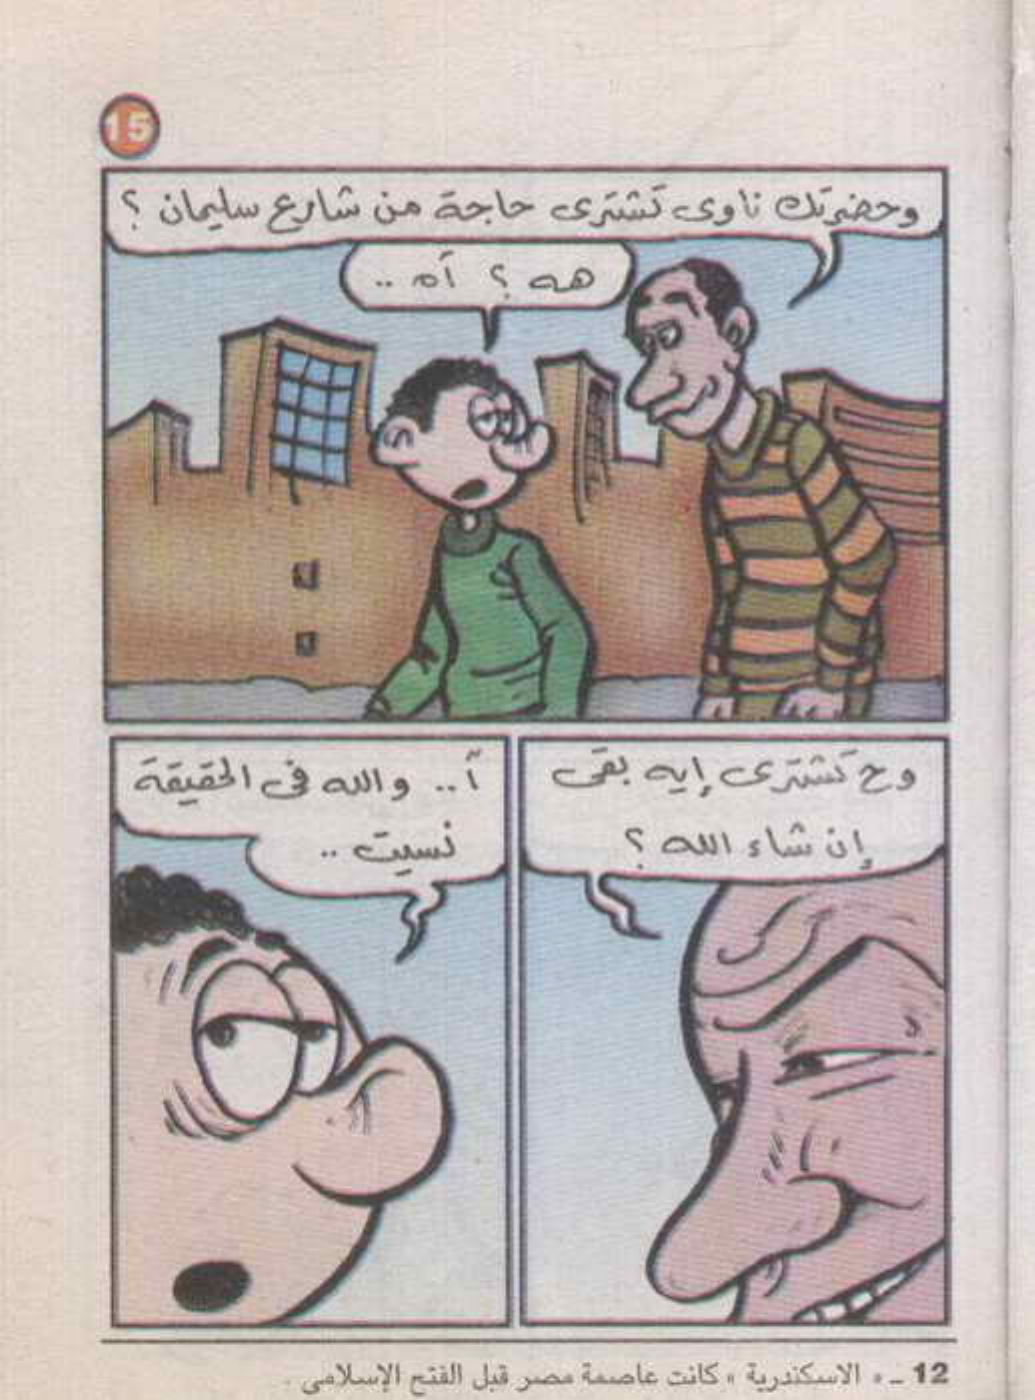 15
وحضرتك ناوى تشترى حاجة من شارع سليمان ؟
هه ؟ آه ..
وح تشترى إيه بقى
إن شاء الله ؟
آ .. والله فى الحقيقة
نسيت ..
12 ـ « الاسكندرية » كانت عاصمة مصر قبل الفتح الإسلامى .